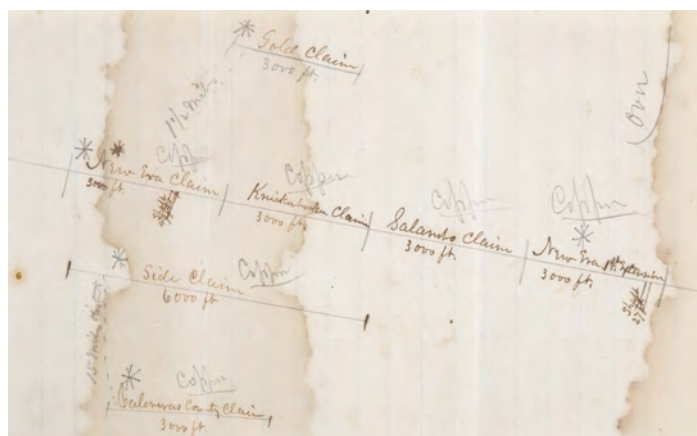 Gold Claim
3000 ft.
1½ Miles
Over
Copper
New Era Claim
3000 ft.
Copper
Knickerbocker Claim
3000 ft.
Copper
Salambo Claim
3000 ft.
Copper
New Era 1st Extension
3000 ft.
Side Claim
6000 ft
Copper
Copper
Calaveras County Claim
3000 ft.